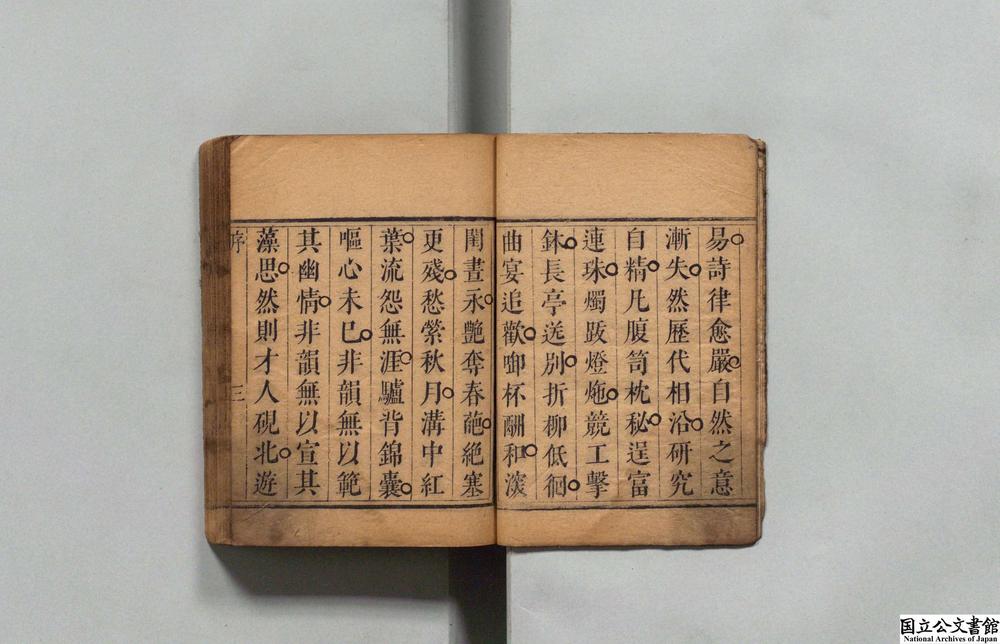 易詩律愈嚴自然之意
漸失然歷代相沿研究
自精凡腹笥枕秘逞富
連珠燭跋燈炧競工擊
鉢長亭送別折柳低徊
曲宴追歡啣杯酬和深
閨晝永艷奪春葩絶塞
更殘愁縈秋月溝中紅
葉流怨無涯驢背錦囊
嘔心未已非韻無以範
其幽情非韻無以宣其
藻思然則才人硯北遊
序
三
国立公文書館
National Archives of Japan